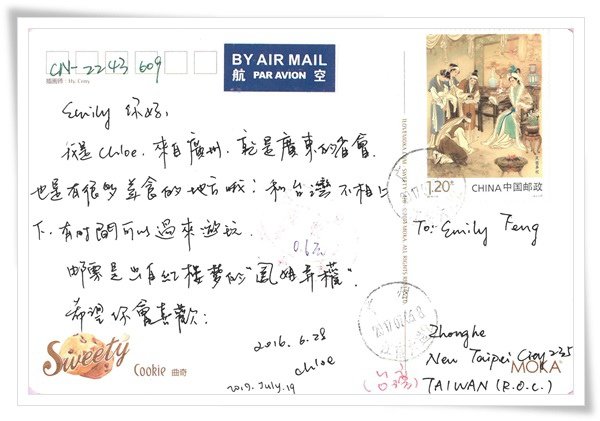 CN-2243609
BY AIR MAIL
航 PAR AVION 空
Emily 你好,
我是 Chloe. 來自廣州, 就是廣東的省會.
也是有很多美食的地方哦! 和台灣不相上
下. 有时間可以過來遊玩.
邮票是出自红楼夢的"鳳姐弄權".
希望你會喜歡:
2016. 6. 28
Chloe
2017. July. 19
0.6元
1.20元
CHINA 中国邮政
To: Emily Feng
Zhonghe
New Taipei City 235
TAIWAN (R.O.C.)
MOKA
Sweety
Cookie 曲奇